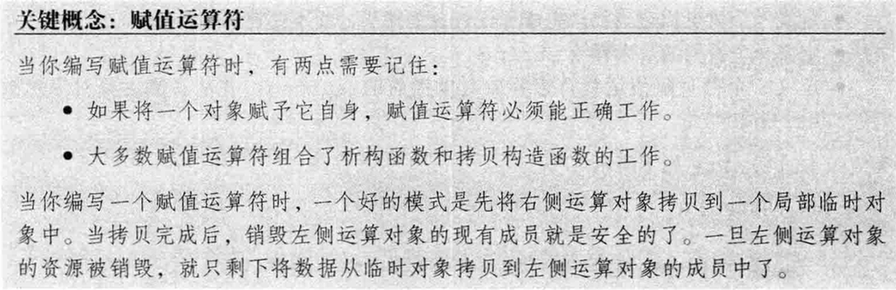 关键概念：赋值运算符
当你编写赋值运算符时，有两点需要记住：
● 如果将一个对象赋予它自身，赋值运算符必须能正确工作。
● 大多数赋值运算符组合了析构函数和拷贝构造函数的工作。
当你编写一个赋值运算符时，一个好的模式是先将右侧运算对象拷贝到一个局部临时对
象中。当拷贝完成后，销毁左侧运算对象的现有成员就是安全的了。一旦左侧运算对象
的资源被销毁，就只剩下将数据从临时对象拷贝到左侧运算对象的成员中了。